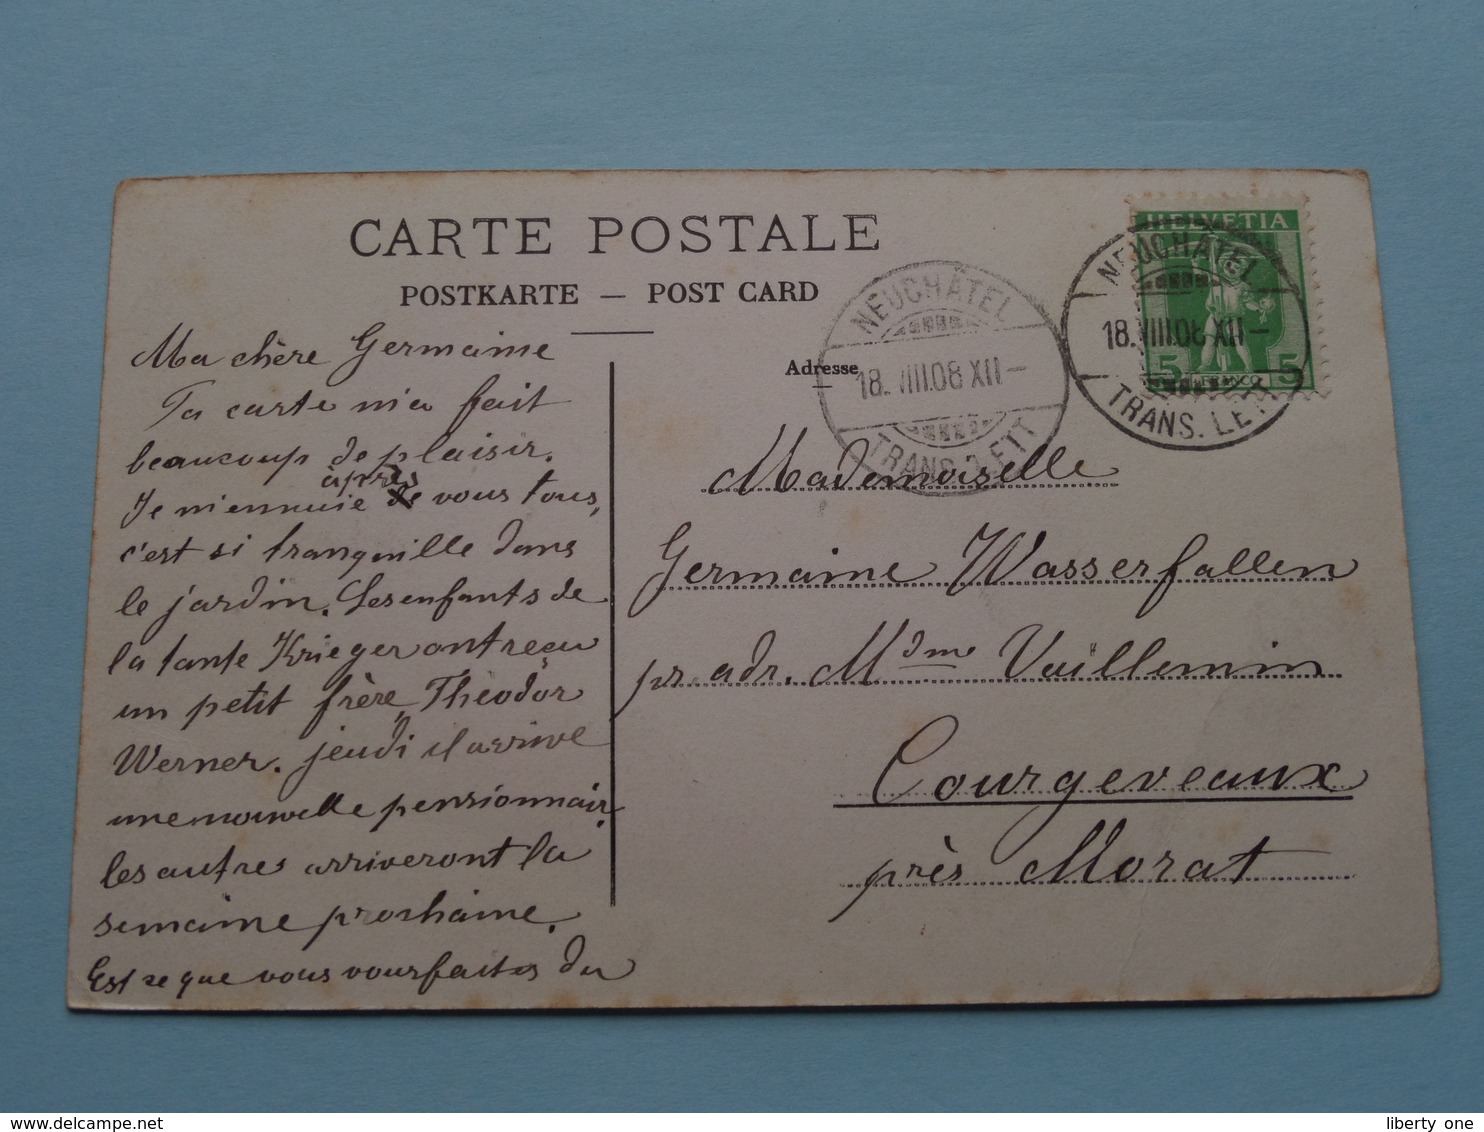 CARTE POSTALE
POSTKARTE — POST CARD
Ma chère Germaine
Ta carte m'a fait
beaucoup de plaisir.
Je m'ennuie àprès vous tous,
c'est si tranquille dans
le jardin. Les enfants de
la tante Krieger ont reçu
un petit frère, Théodor
Werner. jeudi il arrive
une nouvelle pensionnair.
les autres arriveront la
semaine prochaine.
Est ce que vous vous faites du
Adresse
NEUCHÂTEL
18. VIII.08 XII—
TRANS. LETT
HELVETIA
5 FRANCO 5
NEUCHÂTEL
18. VIII.08 XII—
TRANS. LETT
Mademoiselle
Germaine Wasserfallen
pr. adr. Mdme Vuillemin
Courgevaux
près Morat
liberty one